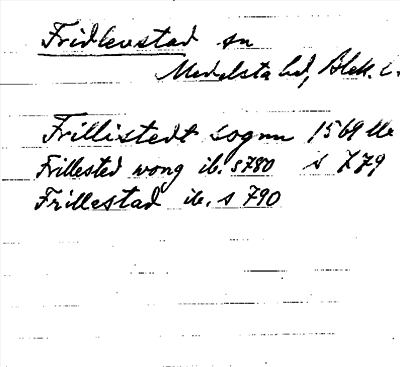 Fridlevstad sn
Medelsta hd, Blek. l.
Frillistedt sognn 1569
s 779
Frillested wong ib. s 780
Frillestad ib. s 790